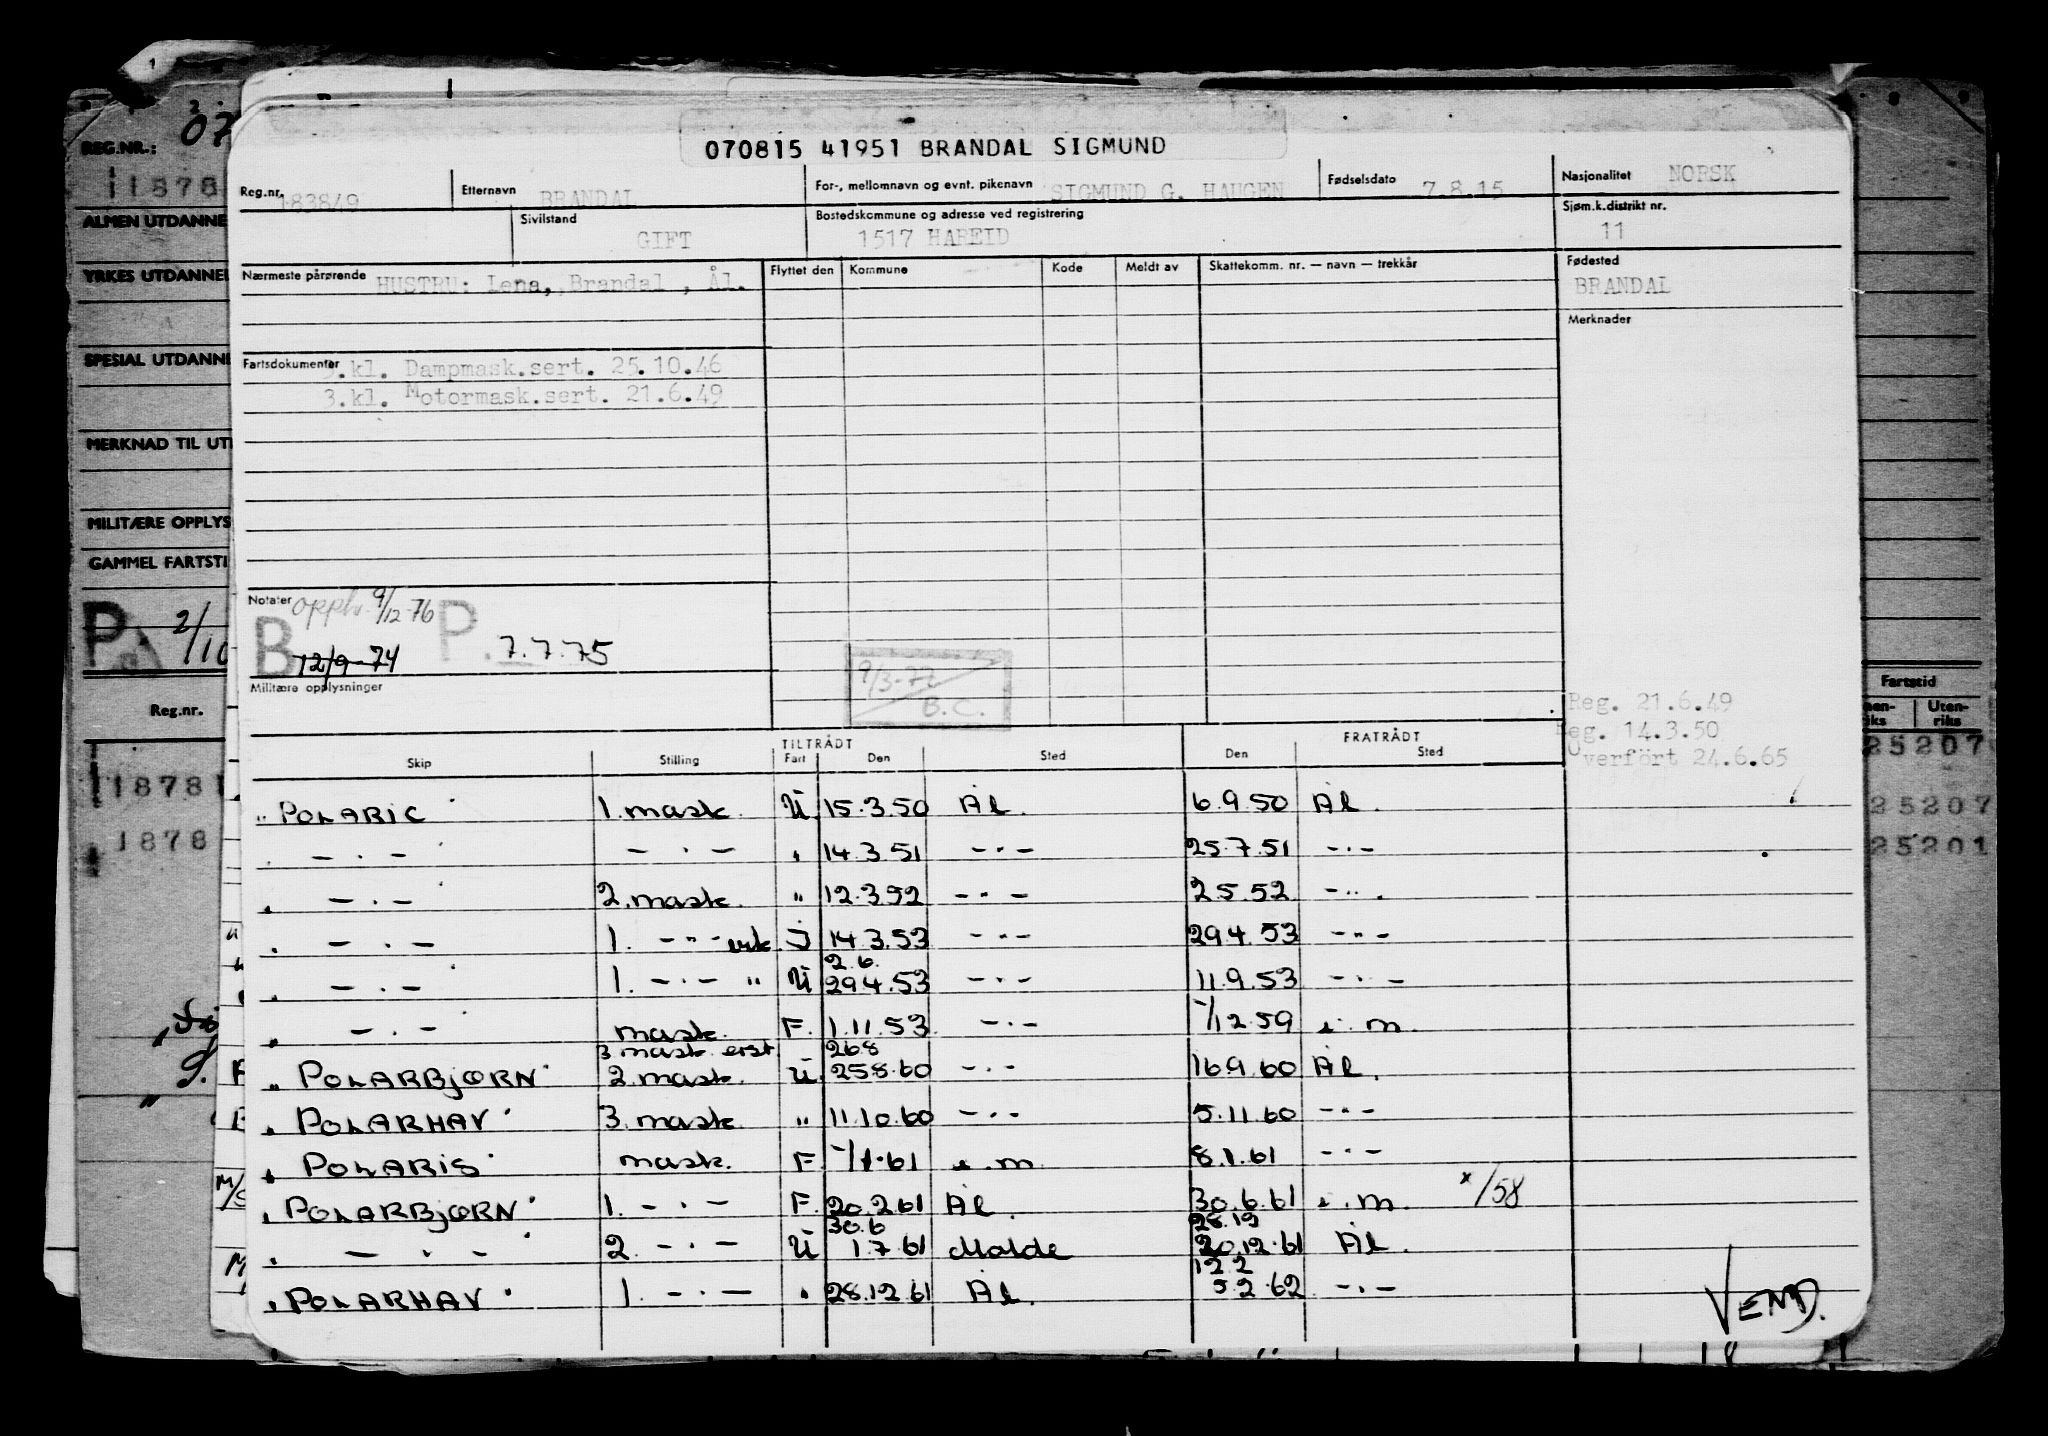 070815 41951 BRANDAL SIGMUND
Reg.nr. 183849 Etternavn BRANDAL For-, mellomnavn og evnt. pikenavn SIGMUND G. HAUGEN Fødselsdato 7.8.15 Nasjonalitet NORSK
Sivilstand GIFT Bostedskommune og adresse ved registrering 1517 HAREID Sjøm.k.distrikt nr. 11
Nærmeste pårørende HUSTRU: Lena, Brandal , Ål. Flyttet den Kommune Kode Meldt av Skattekomm. nr. — navn — trekkår Fødested BRANDAL
Merknader
Fartsdokumenter 3.kl. Dampmask.sert. 25.10.46
3.kl. Motormask.sert. 21.6.49
Notater opph. 9/12-76
B 12/9-74 P. 7.7.75
9/3-77
B.C.
Militære opplysninger
Reg. 21.6.49
Reg. 14.3.50
Overfört 24.6.65
TILTRÅDT FRATRÅDT
Skip Stilling Fart Den Sted Den Sted
" POLARIC " 1. mask. U 15.3.50 Ål. 6.9.50 Ål.
" — . — " — . — " 14.3.51 — . — 25.7.51 — . —
" — . — " 2. mask. " 12.3.52 — " — 2.5.52 — " .
" — . — 1. — " — erk. J 14.3.53 — " — 29.4.53 — " —
2.6.
" — . — " 1. — . — " U 29.4.53 — . — 11.9.53 — . —
" — . — " mask. F. 1.11.53 — . — -/12.59 i. m.
3 mask. erst 26.8
" POLARBJØRN " 2. mask. U 25.8.60 — . — 16.9.60 Ål.
" POLARHAV " 3. mask. " 11.10.60 — . — 5.11.60 — " —
" POLARIS " mask. F -/1.61 i. m. 8.1.61 — . —
" POLARBJØRN " 1. — . — F. 20.2.61 Ål. 30.6.61 i. m. x/58
30.6 28.12
" — . — " 2. — . — U 1.7.61 Molde 20.12.61 Ål.
12.2
" POLARHAV " 1. — . — " 28.12.61 Ål. 5.2.62 — . —
VEND.
REG.NR.: 07
11878
ALMEN UTDANNE
YRKES UTDANNEL
SPESIAL UTDANNE
MERKNAD TIL UT
MILITÆRE OPPLYS
GAMMEL FARTSTI
P 2/10
Reg.nr.
118781
1878
M/S
Fartstid
Uten-
riks
25207
25207
25201